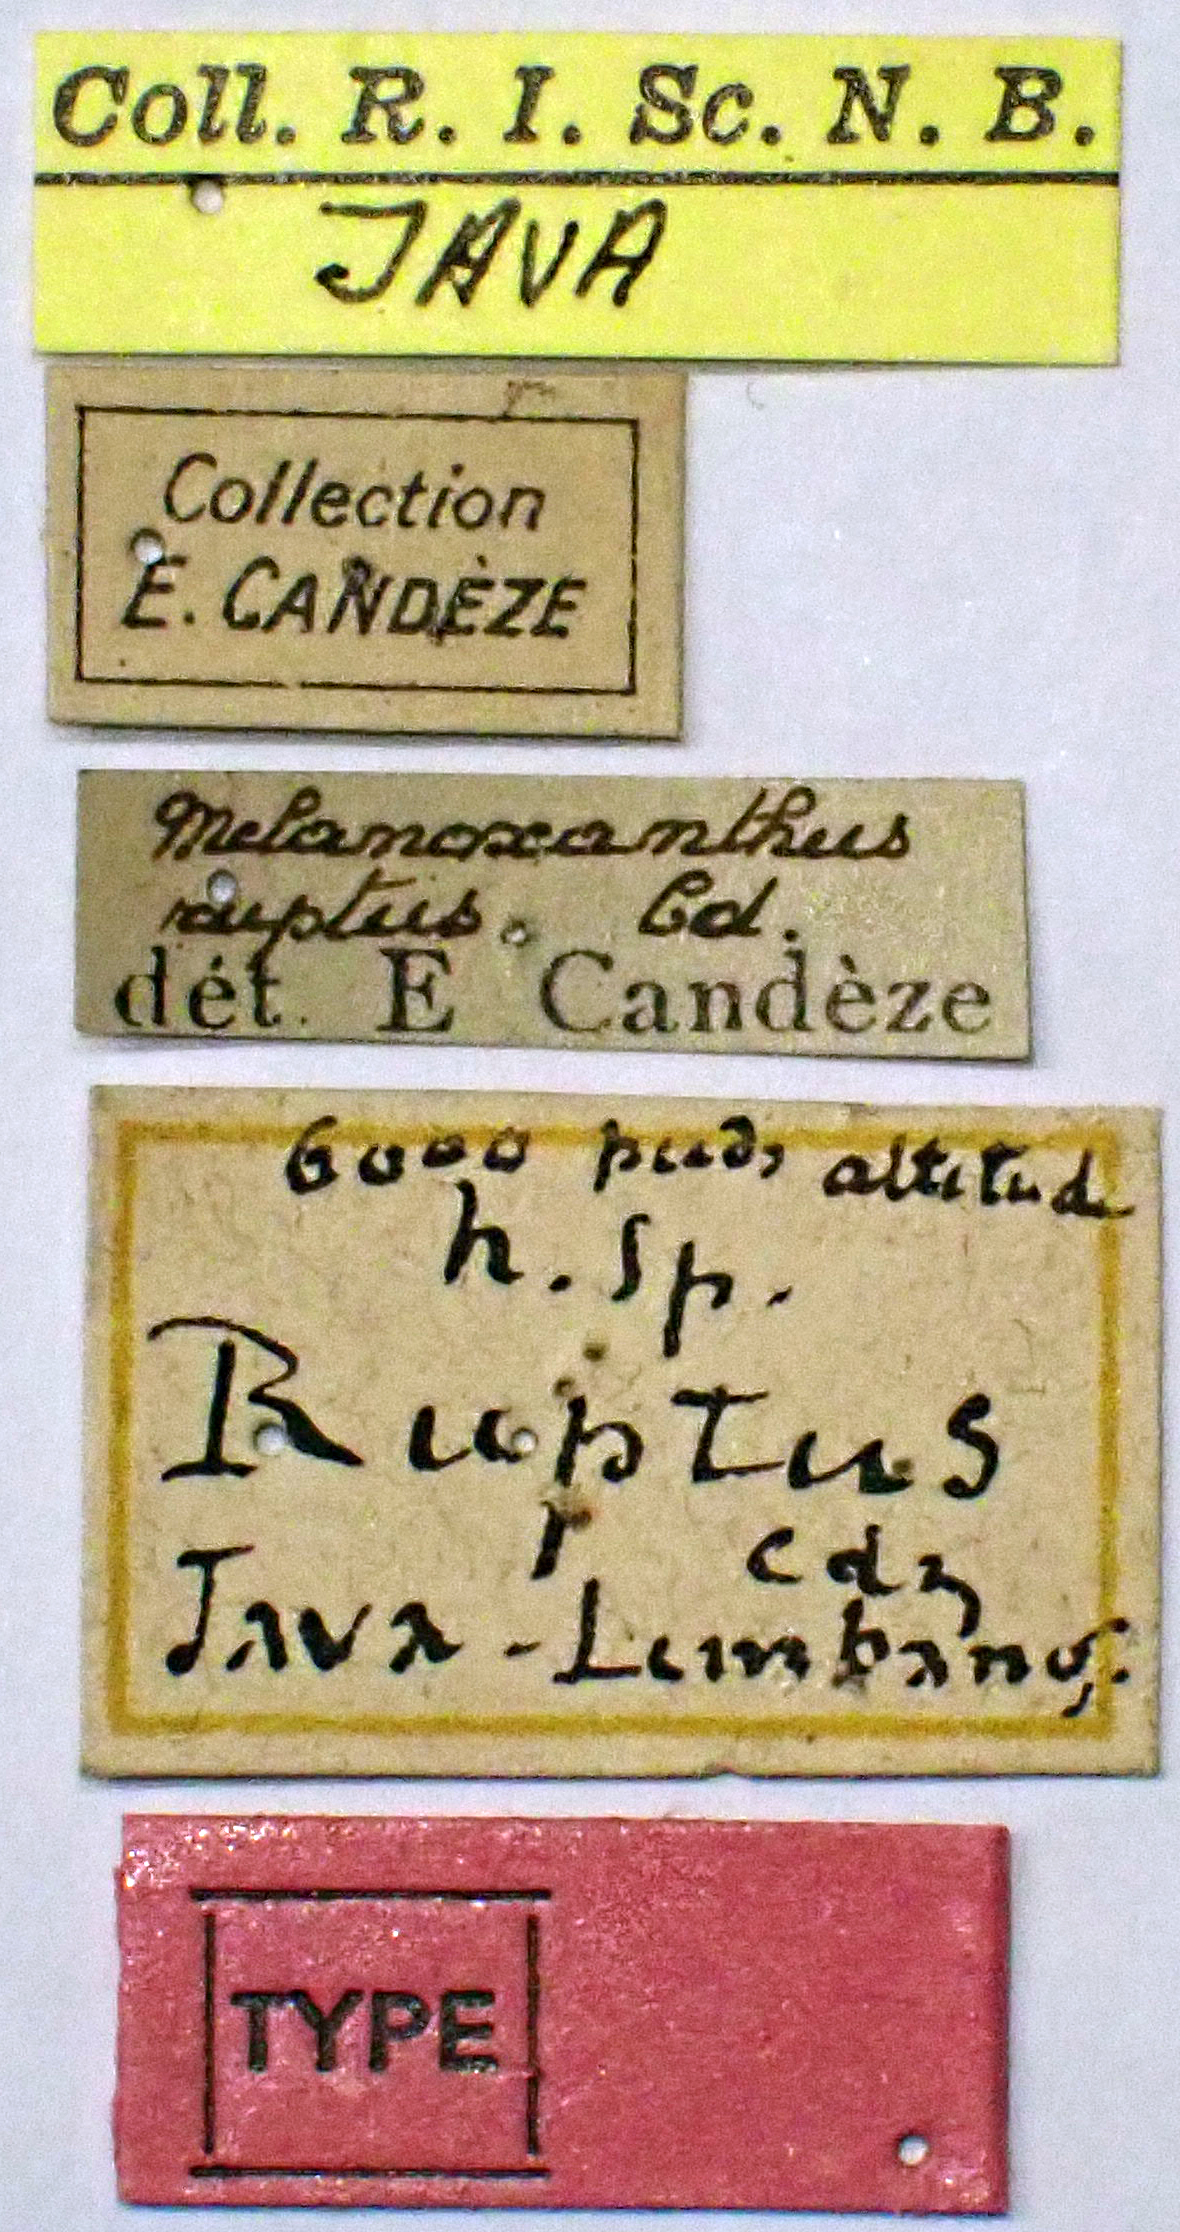 Coll. R. I. Sc. N. B.
JAVA
Collection
E. CANDÈZE
Melanoxanthus
ruptus. Cd.
dét. E Candèze
6000 altitud
n. sp.
Ruptus
cdz
Java - Lembang.
TYPE